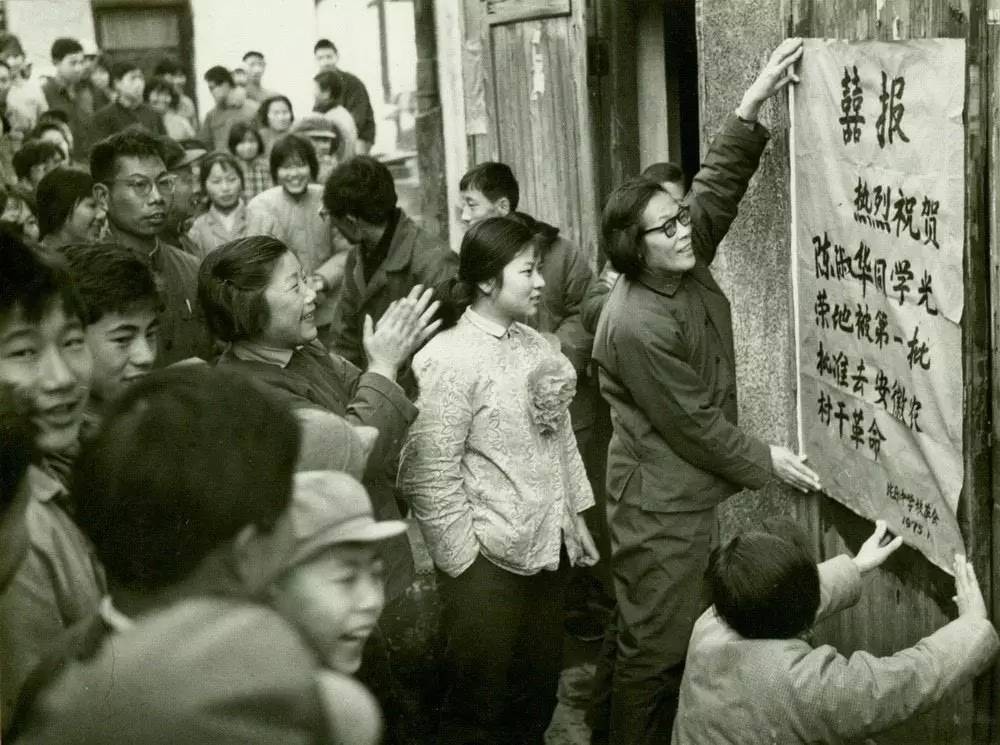 囍报
热烈祝贺
陈淑华同学光
荣地被第一批
批准去安徽农
村干革命
学校革会
1975.1